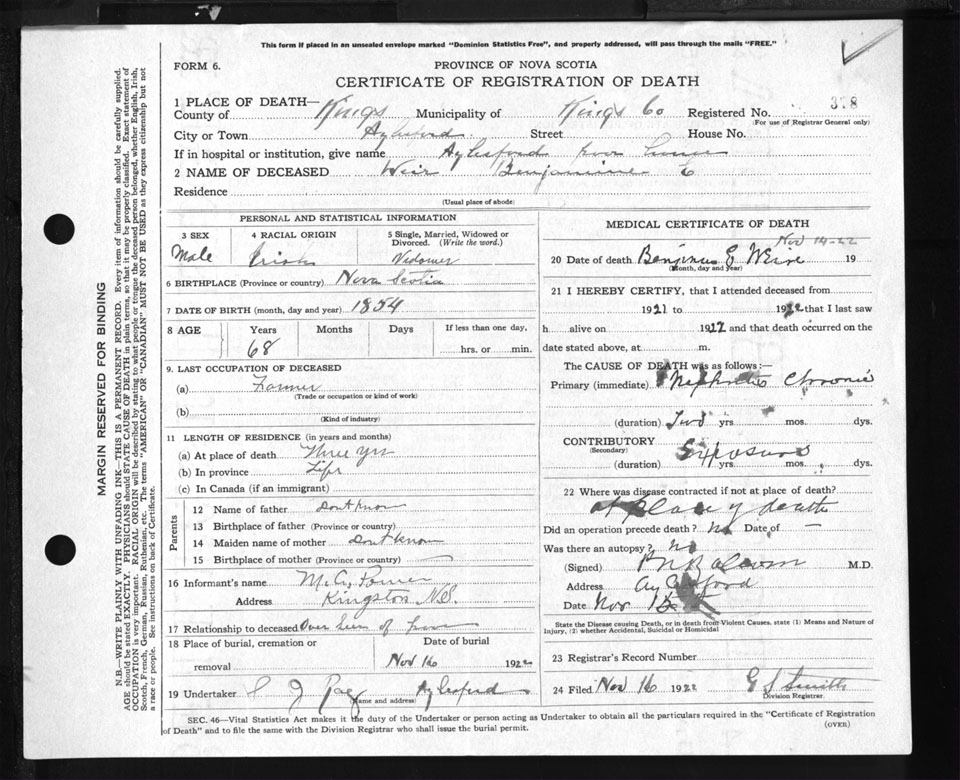 This form if placed in an unsealed envelope marked "Dominion Statistics Free", and properly addressed, will pass through the mails "FREE."
FORM 6.
PROVINCE OF NOVA SCOTIA
CERTIFICATE OF REGISTRATION OF DEATH
1 PLACE OF DEATH—
County of Kings Municipality of Kings Co Registered No. 378
(For use of Registrar General only)
City or Town Aylesford Street House No.
If in hospital or institution, give name Aylesford poor
2 NAME OF DECEASED Weir Benjamine E
Residence
(Usual place of abode)
MARGIN RESERVED FOR BINDING
N.B.—WRITE PLAINLY WITH UNFADING INK—THIS IS A PERMANENT RECORD. Every item of information should be carefully supplied.
AGE should be stated EXACTLY. PHYSICIANS should STATE CAUSE OF DEATH in plain terms, so that it may be properly classified. Exact statement of
OCCUPATION is very important. RACIAL ORIGIN will be described by stating to what people or tongue the deceased person belonged, whether English, Irish,
Scotch, French, German, Russian, Ruthenian, etc. The terms "AMERICAN" OR "CANADIAN" MUST NOT BE USED as they express citizenship but not
a race or people. See instructions on back of Certificate.
PERSONAL AND STATISTICAL INFORMATION
3 SEX
4 RACIAL ORIGIN
5 Single, Married, Widowed or Divorced. (Write the word.)
Male
Irish
Widower
6 BIRTHPLACE (Province or country) Nova Scotia
7 DATE OF BIRTH (month, day and year) 1854
8 AGE
Years
Months
Days
If less than one day,
68
hrs. or min.
9. LAST OCCUPATION OF DECEASED
(a) Farmer
(Trade or occupation or kind of work)
(b)
(Kind of industry)
11 LENGTH OF RESIDENCE (in years and months)
(a) At place of death Three yrs
(b) In province Life
(c) In Canada (if an immigrant)
Parents
12 Name of father Dont know
13 Birthplace of father (Province or country)
14 Maiden name of mother Dont know
15 Birthplace of mother (Province or country)
16 Informant's name
Address Kingston N.S.
17 Relationship to deceased Over Seer of
18 Place of burial, cremation or
removal
Date of burial
Nov 16 1922
19 Undertaker Aylesford
(Name and address)
MEDICAL CERTIFICATE OF DEATH
Nov 14-22
20 Date of death Benjamin E Weir 19
(Month, day and year)
21 I HEREBY CERTIFY, that I attended deceased from
1921 to 1922 that I last saw
h alive on 1922 and that death occurred on
date stated above, at m.
The CAUSE OF DEATH was as follows:—
Primary (immediate) Nephritis Chronic
(duration) Two yrs mos. dys.
CONTRIBUTORY
(Secondary)
Exposure
(duration) yrs. mos. dys.
22 Where was disease contracted if not at place of death?
at place of death
Did an operation precede death? No Date of —
Was there an autopsy? No
(Signed) M.D.
Address Aylesford
Date Nov
State the Disease causing Death, or in death from Violent Causes, state (1) Means and Nature of
Injury, (2) whether Accidental, Suicidal or Homicidal
23 Registrar's Record Number
24 Filed Nov 16 1922 G S Smith
Division Registrar.
SEC. 46—Vital Statistics Act makes it the duty of the Undertaker or person acting as Undertaker to obtain all the particulars required in the "Certificate of Registration
of Death" and to file the same with the Division Registrar who shall issue the burial permit.
(OVER)